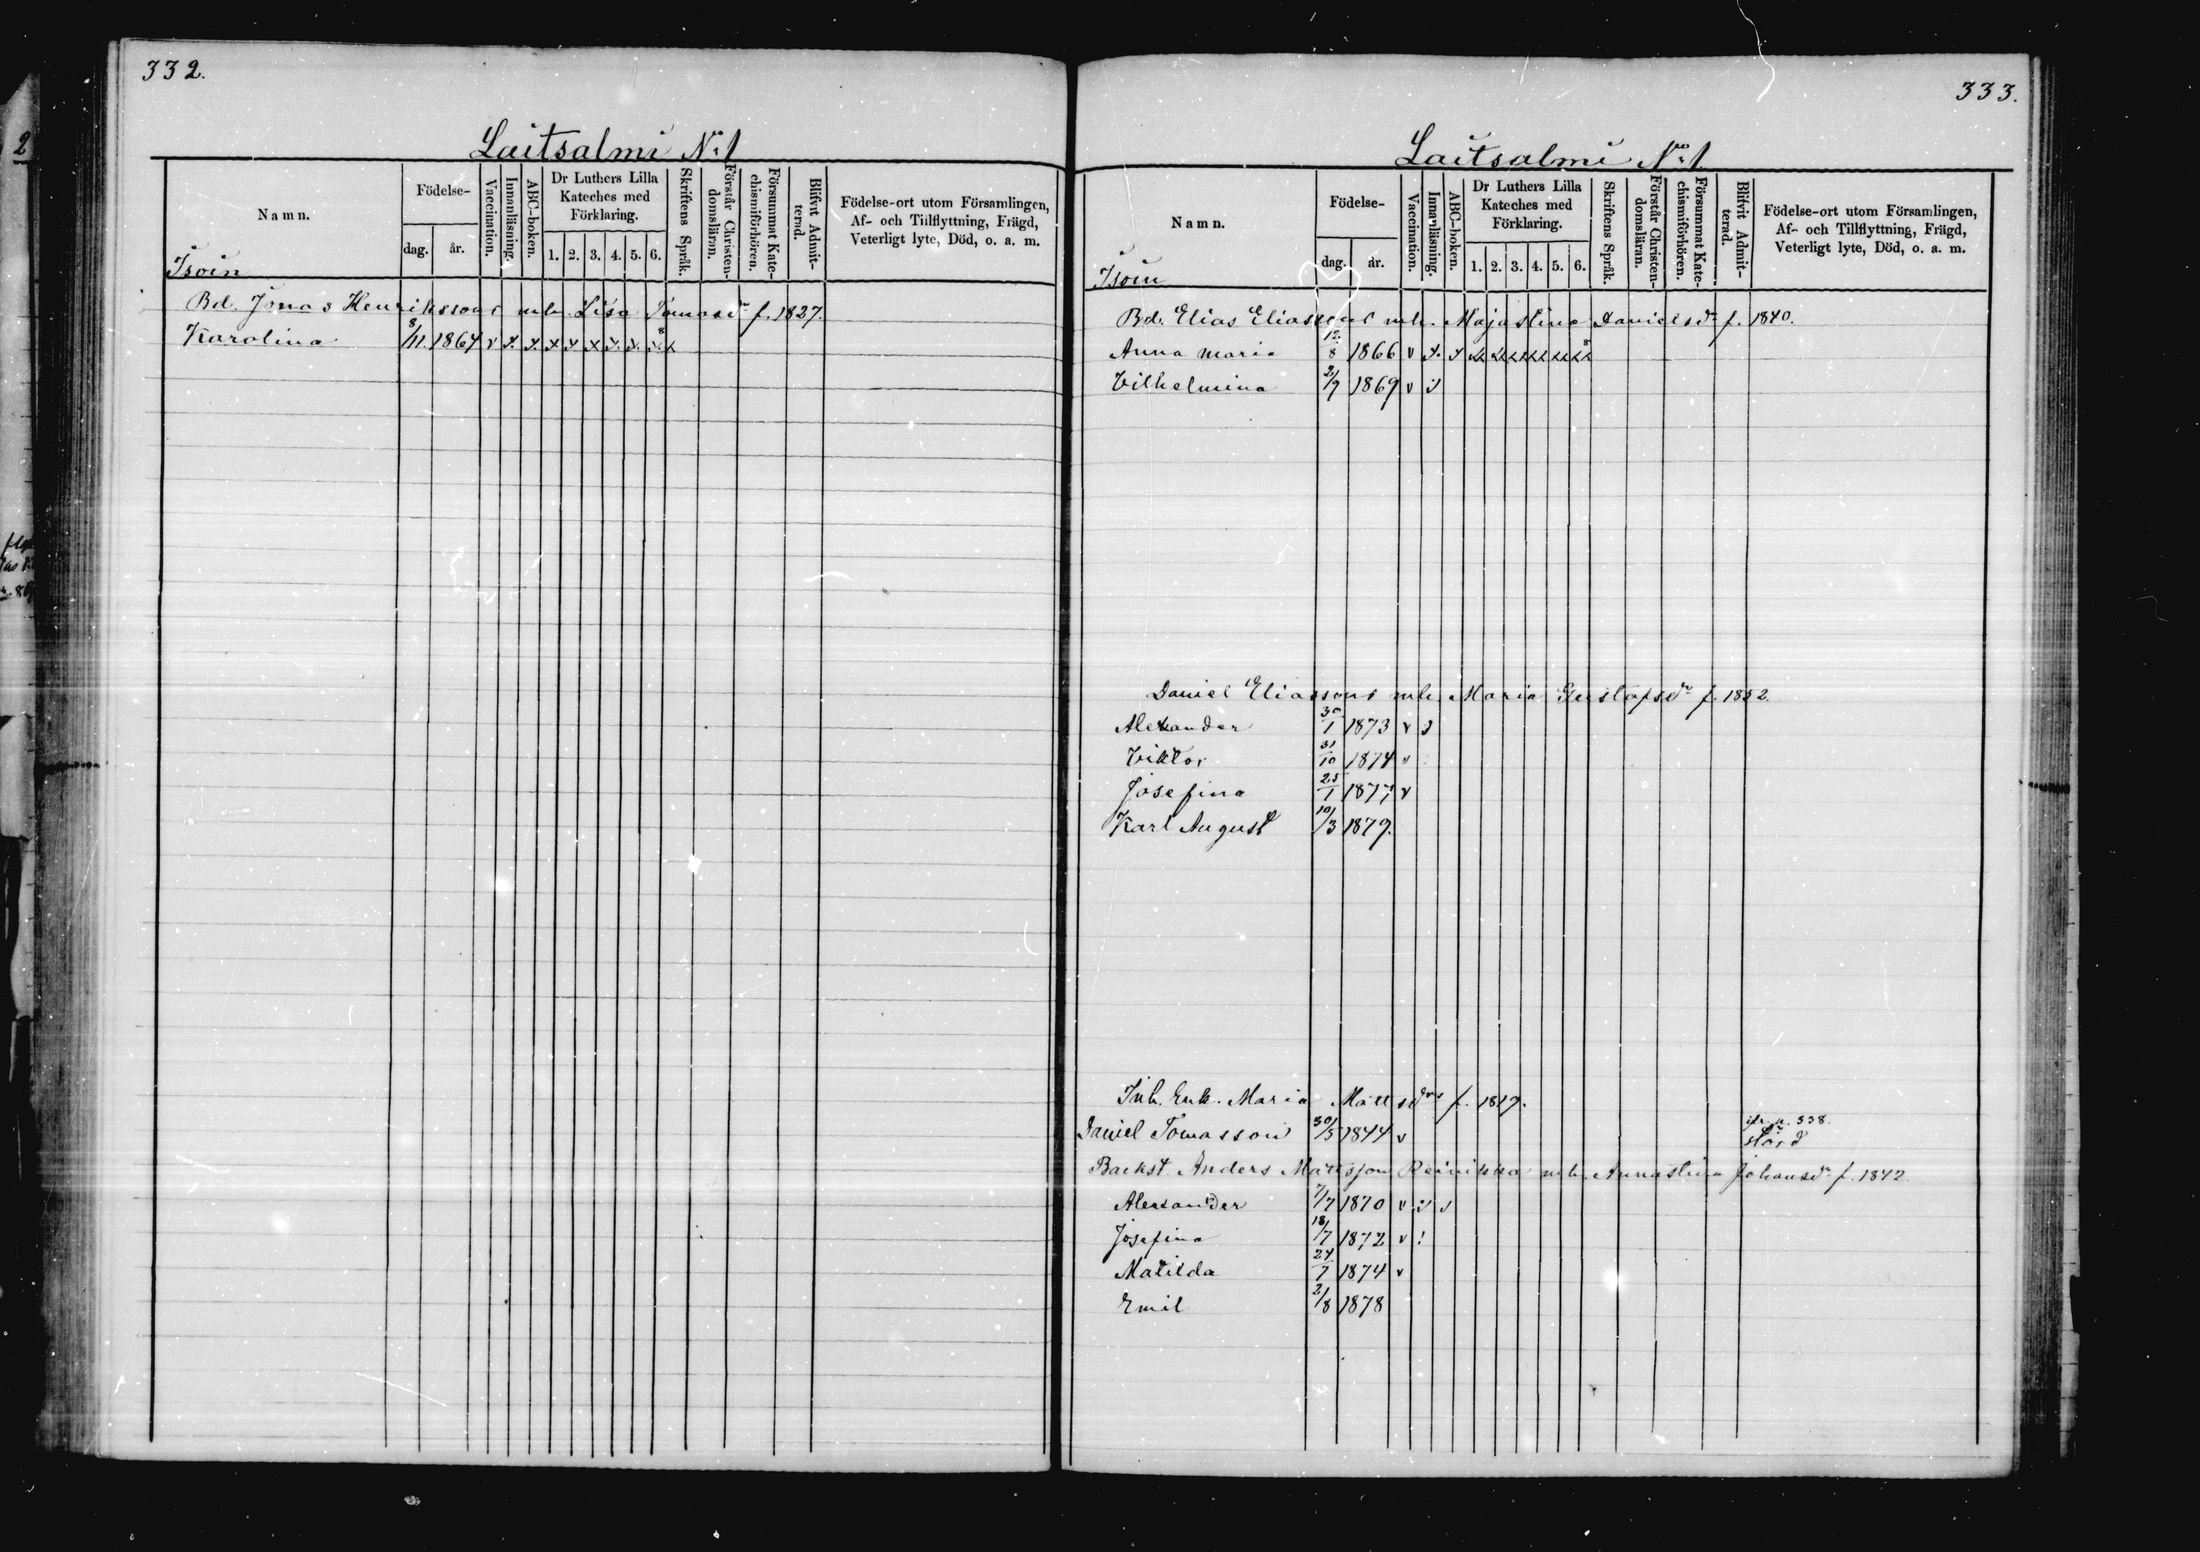 332.
Laitsalmi No 1
Namn.
Födelse-
dag.
år.
Vaccination.
Innanläsning.
ABC-boken.
Dr Luthers Lilla Kateches med Förklaring.
1. 2. 3. 4. 5. 6.
Skriftens Språk.
Förstår Christendomsläran.
Försummat Katechismiförhören.
Blifvit Admitterad.
Födelse-ort utom Församlingen, Af- och Tillflyttning, Frägd, Veterligt lyte, Död, o. a. m.
Isoin
Bd. Jonas Henrikssons mh. Lisa Tomasdr f. 1827.
Karolina 8/11. 1864 v x x x x x x x x 8 x
333.
Laitsalmi No 1
Namn.
Födelse-
dag.
år.
Vaccination.
Innanläsning.
ABC-boken.
Dr Luthers Lilla Kateches med Förklaring.
1. 2. 3. 4. 5. 6.
Skriftens Språk.
Förstår Christendomsläran.
Försummat Katechismiförhören.
Blifvit Admitterad.
Födelse-ort utom Församlingen, Af- och Tillflyttning, Frägd, Veterligt lyte, Död, o. a. m.
Isoin
Bd. Elias Eliassons mh. Majastina Danielsdr f. 1840.
Anna Maria 12/8 1866 v x x
Vilhelmina 2/9 1869 v
Daniel Eliassons mh. Maria Gustafsdr f. 1852.
Alexander 30/1 1873 v
Viktor 31/10 1874 v
Josefina 25/1 1877 v
Karl August 10/3 1879.
Inh. Enk. Maria Mattsdrs f. 1819.
Daniel Tomasson 30/5 1844 v p. 338.
Backst. Anders Mattsson Reinikka mh. Annastina Johansdr f. 1842.
Alexander 7/7 1870 v
Josefina 18/7 1872 v
Matilda 24/7 1874 v
Emil 2/8 1878